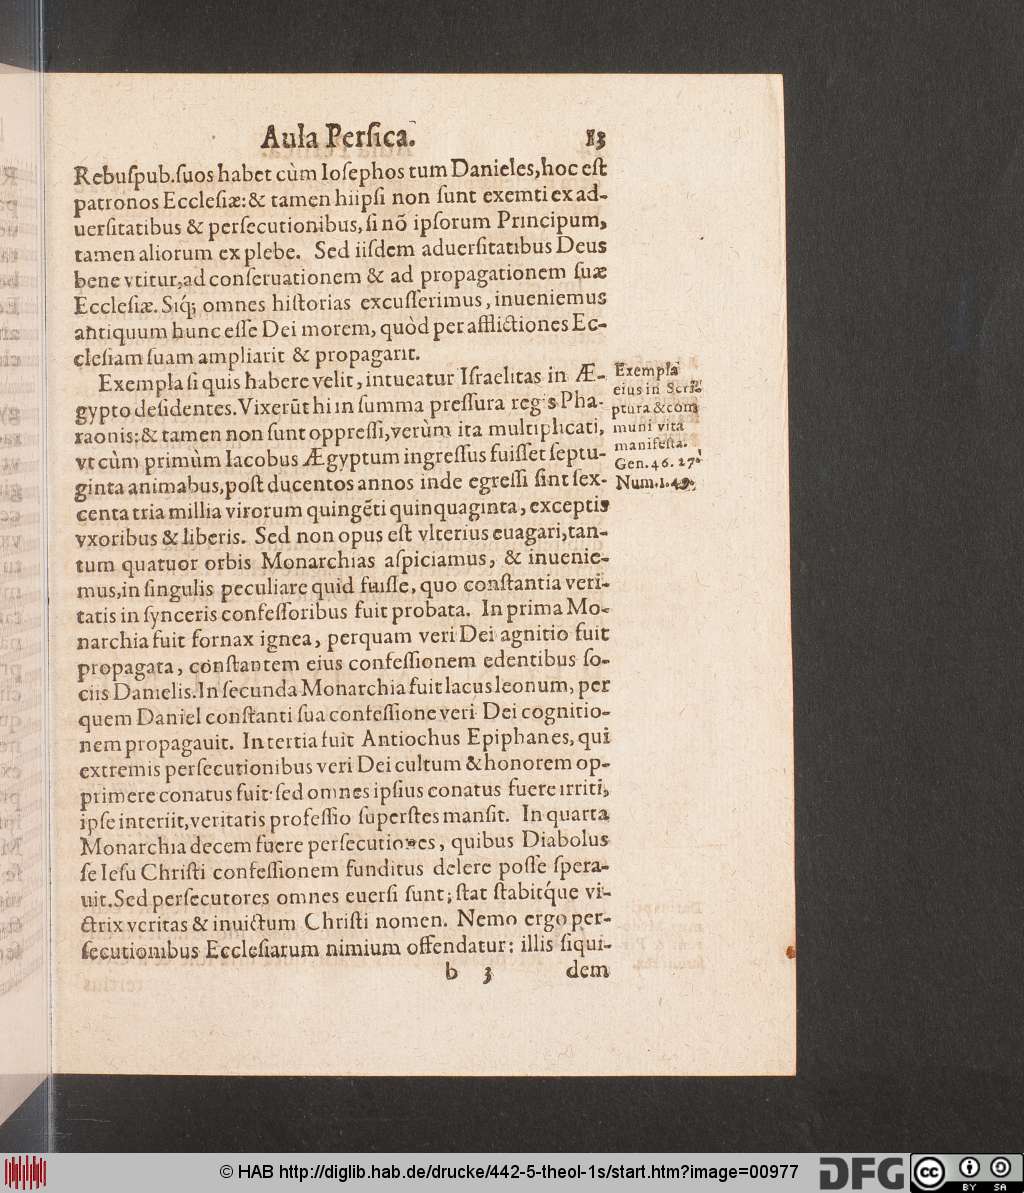 Aula Persica. 13
Rebuſpub. ſuos habet cùm Ioſephos tum Danieles, hoc eſt
patronos Eccleſiæ: & tamen hiipſi non ſunt exemti ex ad-
uerſitatibus & perſecutionibus, ſi nõ ipſorum Principum,
tamen aliorum ex plebe. Sed iiſdem aduerſitatibus Deus
bene vtitur, ad conſeruationem & ad propagationem ſuæ
Eccleſiæ. Siq́; omnes hiſtorias excuſſerimus, inueniemus
antiquum hunc eſſe Dei morem, quòd per afflictiones Ec-
cleſiam ſuam ampliarit & propagarit.
Exempla ſi quis habere velit, intueatur Iſraelitas in Æ-
gypto deſidentes. Vixerũt hi in ſumma preſſura regis Pha-
raonis: & tamen non ſunt oppreſſi, verùm ita multiplicati,
vt cùm primùm Iacobus Ægyptum ingreſſus fuiſſet ſeptu-
ginta animabus, poſt ducentos annos inde egreſſi ſint ſex-
centa tria millia virorum quingẽti quinquaginta, exceptis
vxoribus & liberis. Sed non opus eſt vlterius euagari, tan-
tum quatuor orbis Monarchias aſpiciamus, & inuenie-
mus, in ſingulis peculiare quid fuiſſe, quo conſtantia veri-
tatis in ſynceris confeſſoribus fuit probata. In prima Mo-
narchia fuit fornax ignea, perquam veri Dei agnitio fuit
propagata, conſtantem eius confeſſionem edentibus ſo-
ciis Danielis. In ſecunda Monarchia fuit lacus leonum, per
quem Daniel conſtanti ſua confeſſione veri Dei cognitio-
nem propagauit. In tertia fuit Antiochus Epiphanes, qui
extremis perſecutionibus veri Dei cultum & honorem op-
primere conatus fuit: ſed omnes ipſius conatus fuere irriti,
ipſe interiit, veritatis profeſſio ſuperſtes manſit. In quarta
Monarchia decem fuere perſecutiones, quibus Diabolus
ſe Ieſu Chriſti confeſſionem funditus delere poſſe ſpera-
uit. Sed perſecutores omnes euerſi ſunt; ſtat ſtabitq́ue vi-
ctrix veritas & inuictum Chriſti nomen. Nemo ergo per-
ſecutionibus Eccleſiarum nimium offendatur: illis ſiqui-
b 3 dem
Exempla
eius in Scri-
ptura & com
muni vita
manifeſta.
Gen. 46. 27.
Num. 1. 49.
© HAB http://diglib.hab.de/drucke/442-5-theol-1s/start.htm?image=00977
DFG
cc BY SA